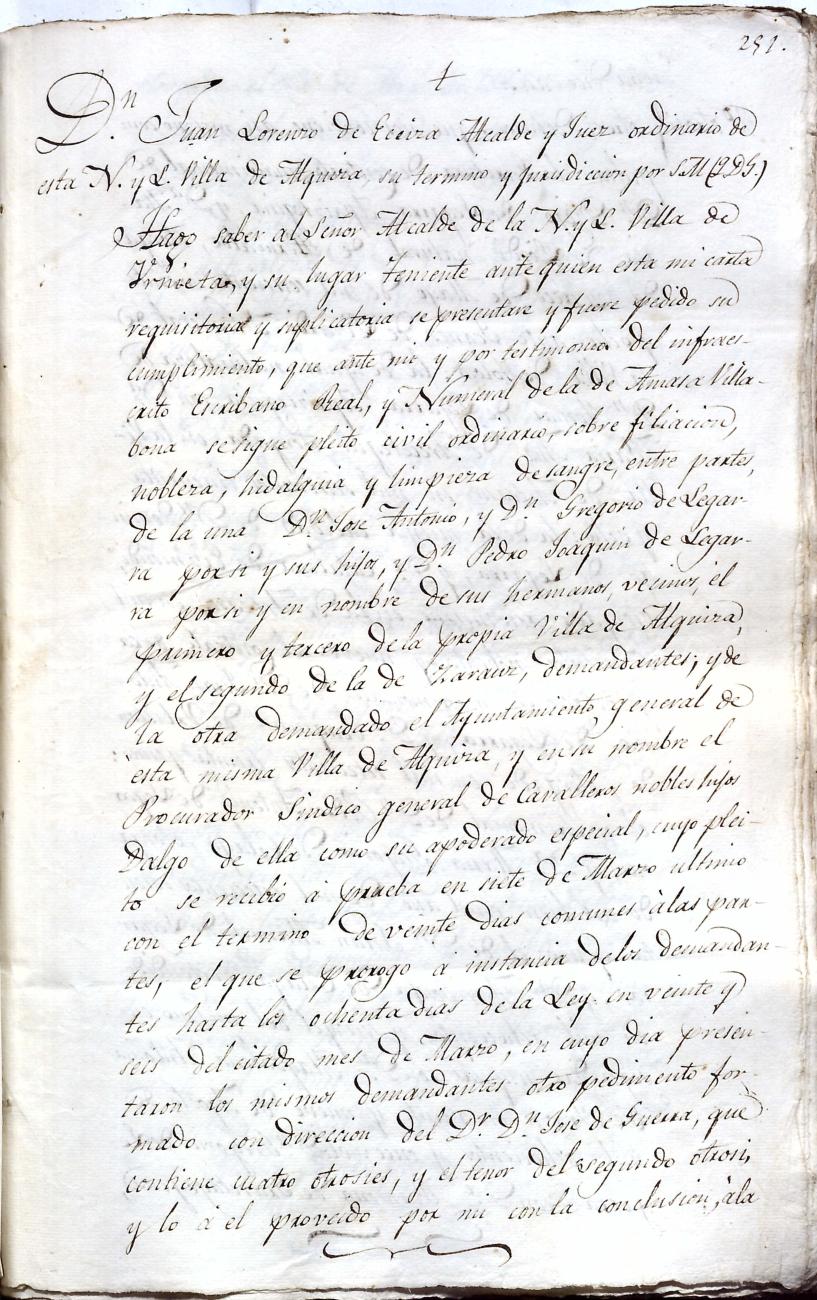 251.
+
Dn. Juan Lorenzo de Eceiza Alcalde y Juez ordinario de
esta N. y L. Villa de Alquiza, su termino y Jurisdiccion por S.M (QDG.)
Hago saber al Señor Alcalde de la N. y L. Villa de
Vrnieta, y su lugar Teniente ante quien esta mi carta
requisitoria y suplicatoria se presentare y fuere pedido su
cumplimiento, que ante mi y por testimonio del infraes-
crito Escribano Real, y Numeral de la de Amasa Villa-
bona se sigue pleito civil ordinario, sobre filiacion,
nobleza, hidalguia y limpieza de sangre, entre partes,
de la una Dn. Jose Antonio, y Dn Gregorio de Legar-
ra por si y sus hijos, y Dn Pedro Joaquin de Legar-
ra por si y en nombre de sus hermanos, vecinos, el
primero y tercero de la propia Villa de Alquiza,
y el segundo de la de Zarauz, demandantes; y de
la otra demandado el Ayuntamiento general de
esta misma Villa de Alquiza, y en su nombre el
Procurador Sindico general de Cavalleros nobles hijos
Dalgo de ella como su apoderado especial, cuyo plei-
to se recibió á prueba en siete de Marzo ultimo
con el termino de veinte dias comunes á las par-
tes, el que se prorogo á instancia de los demandan-
tes hasta los ochenta dias de la Ley en veinte y
seis del citado mes de Marzo, en cuyo dia presen-
taron los mismos demandantes otro pedimento for-
mado con direccion del Dr. Dn Jose de Guerra, que
contiene cuatro otrosies, y el tenor del segundo otrosi,
y lo á el proveido por mi con la conclusion, á la